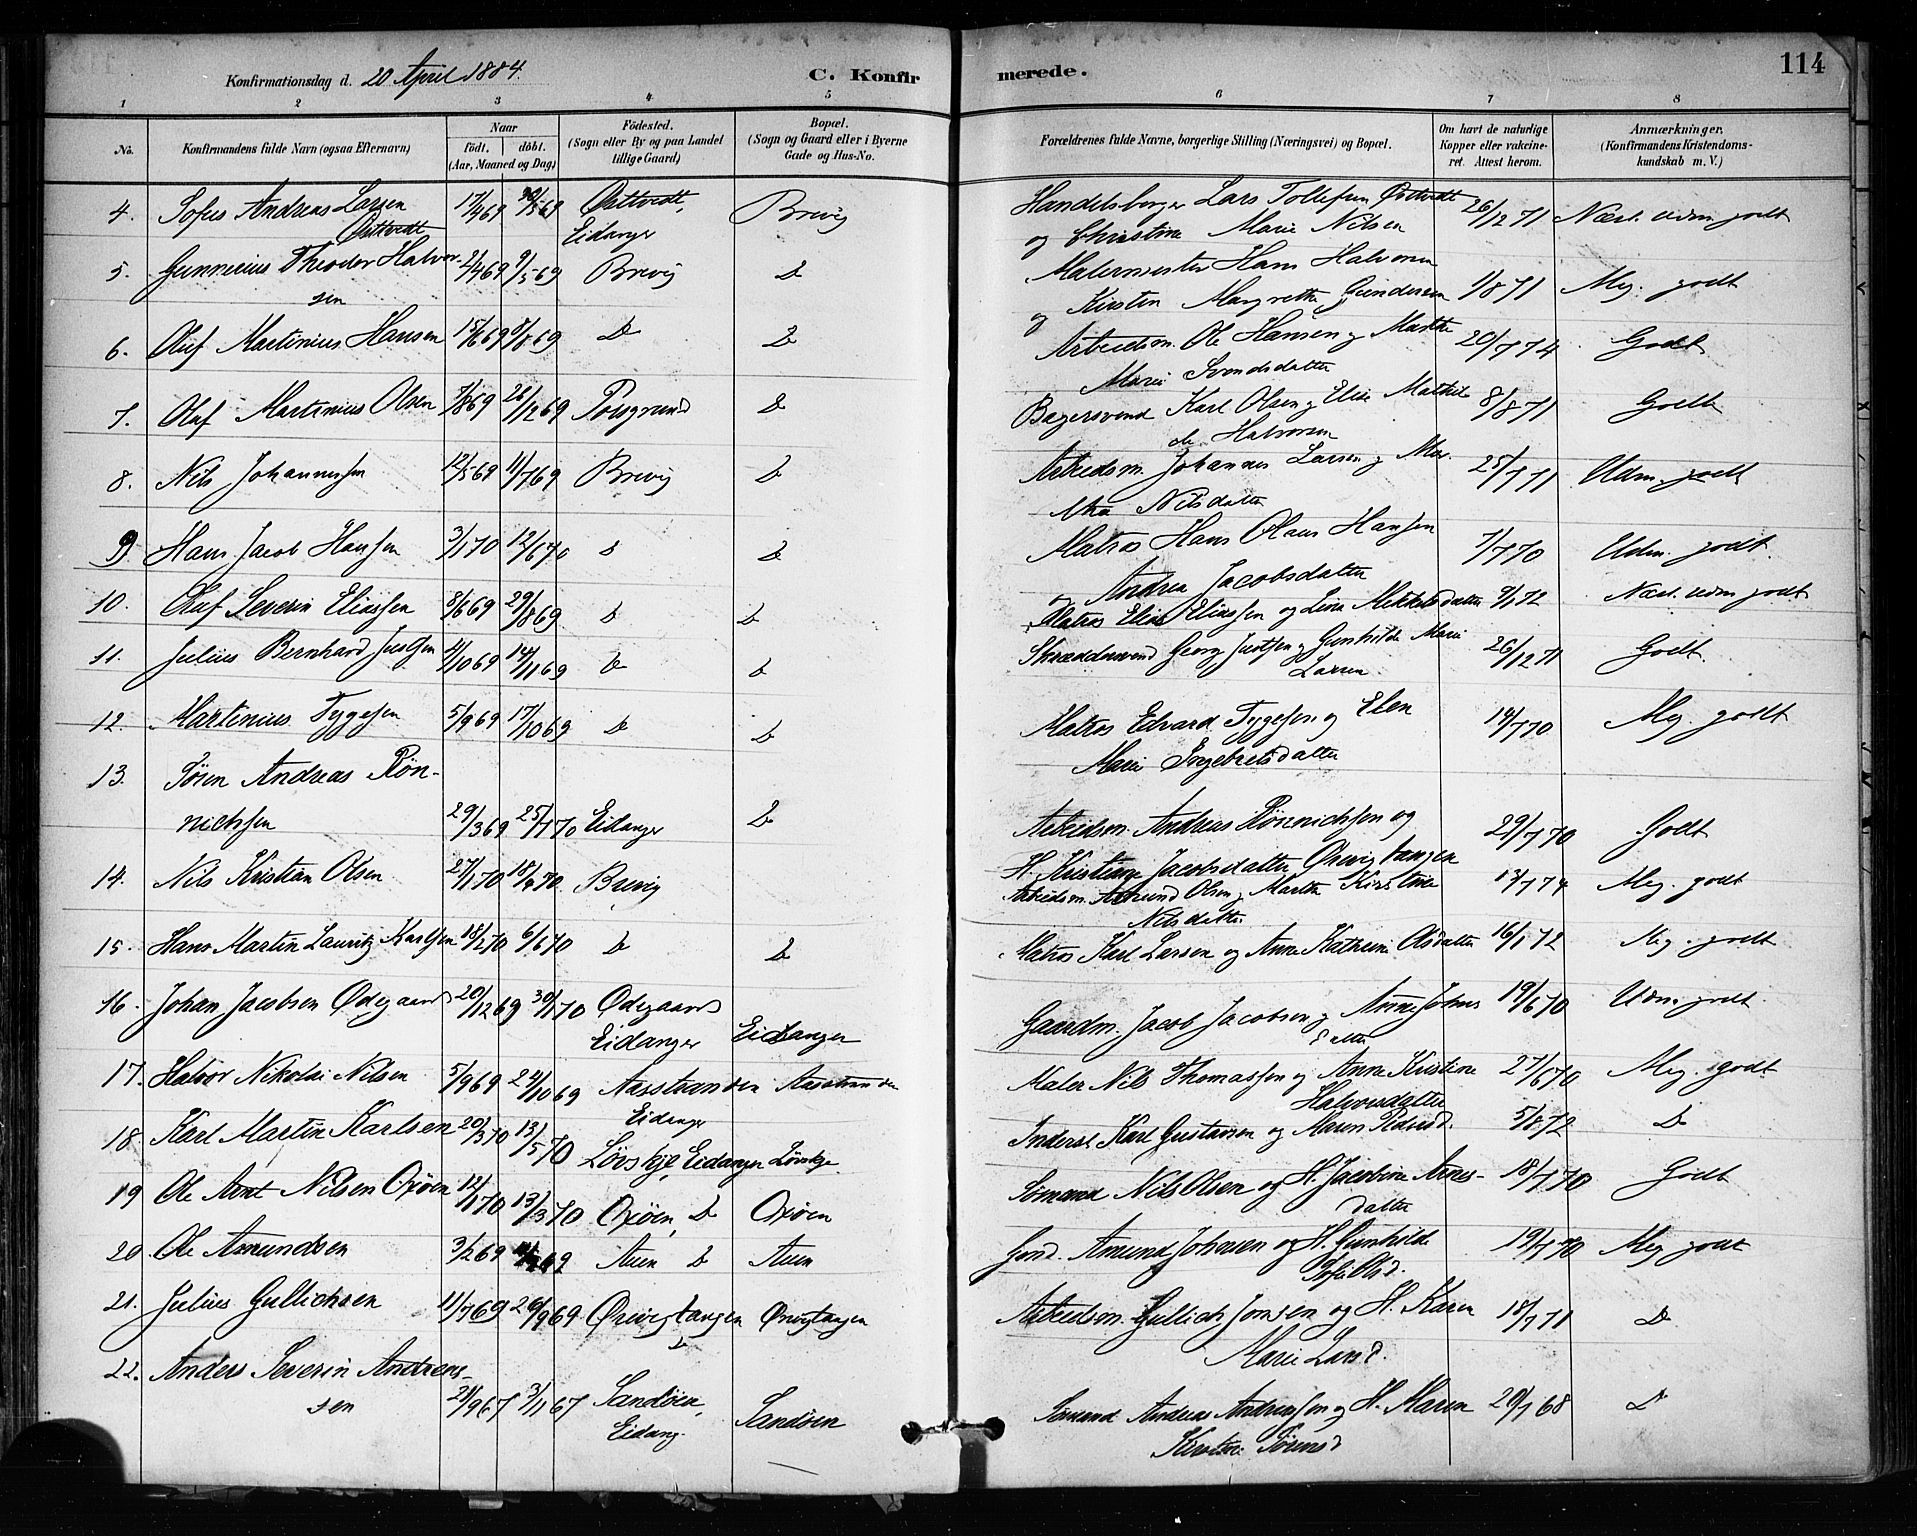 Konfirmationsdag d. 20 April 1884. C. Konfir
merede. 114
1 2 3 4 5 6 7 8
No. Konfirmandens fulde Navn (ogsaa Efternavn) Naar födt. döbt. (Aar, Maaned og Dag) Födested. (Sogn eller By og paa Landet tillige Gaard) Bopæl. (Sogn og Gaard eller i Byerne Gade og Hus-No.
Forældrenes fulde Navne, borgerlige Stilling (Næringsvei) og Bopæl. Om havt de naturlige Kopper eller vakcineret. Attest herom. Anmærkninger. (Konfirmandens Kristendomskundskab m. V.)
4. Sofus Andreas Larsen 17/4 69 /5 69 Østtvedt, Brevig Handelsborger Lars Tollefsen Østtvedt 26/12 71 Næst. udm godt
Østtvedt Eidanger og Christine Marie Nilsen
5. Gunnerius Theodor Halvor- 2/4 69 9/5 69 Brevig D Malermester Hans Halvorsen
sen og Kirsten Margrethe Gundersen 1/8 71 Meg. godt
6. Oluf Martinius Hansen 15/6 69 8/8 69 D D Arbeidsm. Ole Hansen og Marthe 20/7 74 Godt
Marie Svendsdatter
7. Olaf Martinius Olsen 7/8 69 26/12 69 Porsgrund D Bagersvend Karl Olsen og Elise Mathil 8/8 71 Godt
de Halvorsen
8. Nils Johannesen 12/5 69 11/7 69 Brevig D Arbeidsm. Johannes Larsen og Mar- 25/7 71 Udm. godt
tha Nilsdatter
9. Hans Jacob Hansen 3/1 70 12/6 70 D D Matros Hans Olaus Hansen 1/7 70 Udm. godt
og Andrea Jacobsdatter
10. Oluf Severin Eliassen 8/6 69 29/8 69 D D Matros Elias Eliassen og Lina Mikkelsdatter 9/1 72 Næst. udm godt
11. Julius Bernhard Justsen 4/10 69 14/11 69 D D Skrædersvend Georg Justsen og Gunhilde Marie 26/12 71 Godt.
Larsen.
12. Martinius Tygesen 5/9 69 17/10 69 D D Matros Edvard Tygesen og Elen 14/7 70 Meg. godt
Marie Ingebretsdatter
13. Søren Andreas Røn-
nichsen 29/3 69 25/1 70 Eidanger D Arbeidsm. Andreas Rönnichsen og 29/7 70 Godt
H. Kristiane Jacobsdatter Ørvigtangen
14. Nils Kristian Olsen 27/1 70 18/4 70. Brevig Arbeidsm. Amund Olsen og Marthe Kirstine 13/7 74 Meg. godt
Nilsdatter
15. Hans Martin Lauritz Karlsen 18/2 70 6/6 70 D D Matros Karl Larsen og Anne Kathrine Olsdatter 16/1 72 Meg. godt
16. Johan Jacobsen Ødegaard 20/12 69 30/1 70 Ødegaard Gaardm. Jacob Jacobsen og Anne Johns 19/6 70 Udm. godt.
Eidanger Eidanger datter
17. Halvor Nikolai Nilsen 5/9 69 24/10 69 Aasstranden Aasstranden Maler Nils Thomassen og Anne Kristine 27/6 70 Meg. godt
Eidanger Halvorsdatter
18. Karl Martin Karlsen 20/3 70 13/5 70 Løvskje Eidanger Løvskje Inderst Karl Gustavsen og Maren Pedersd. 5/8 72 D
19 Ole Arnt Nilsen Oxøen 12/1 70 13/3 70 Oxøen, D Oxøen Sømand Nils Olsen og H. Jacobine Arnes- 18/7 70 Godt
datter
20 Ole Amundsen 3/2 69 69 Auen D Auen Amund Johnsen og H. Gunhilde 19/7 70 Meg godt
Sofie Olsd.
21. Julius Gullichsen 11/7 69 26/9 69 Ørvigtangen Ørvigtangen Arbeidsm. Gullich Jonsen og H. Karen 18/7 71 D
D Marie Larsd.
22. Anders Severin Andreas-
sen 21/9 67 3/11 67 Sandøen, Sandøen Sømand Andreas Andreassen og H. Maren 20/1 68 D
Eidang. Kirstine Sørensd